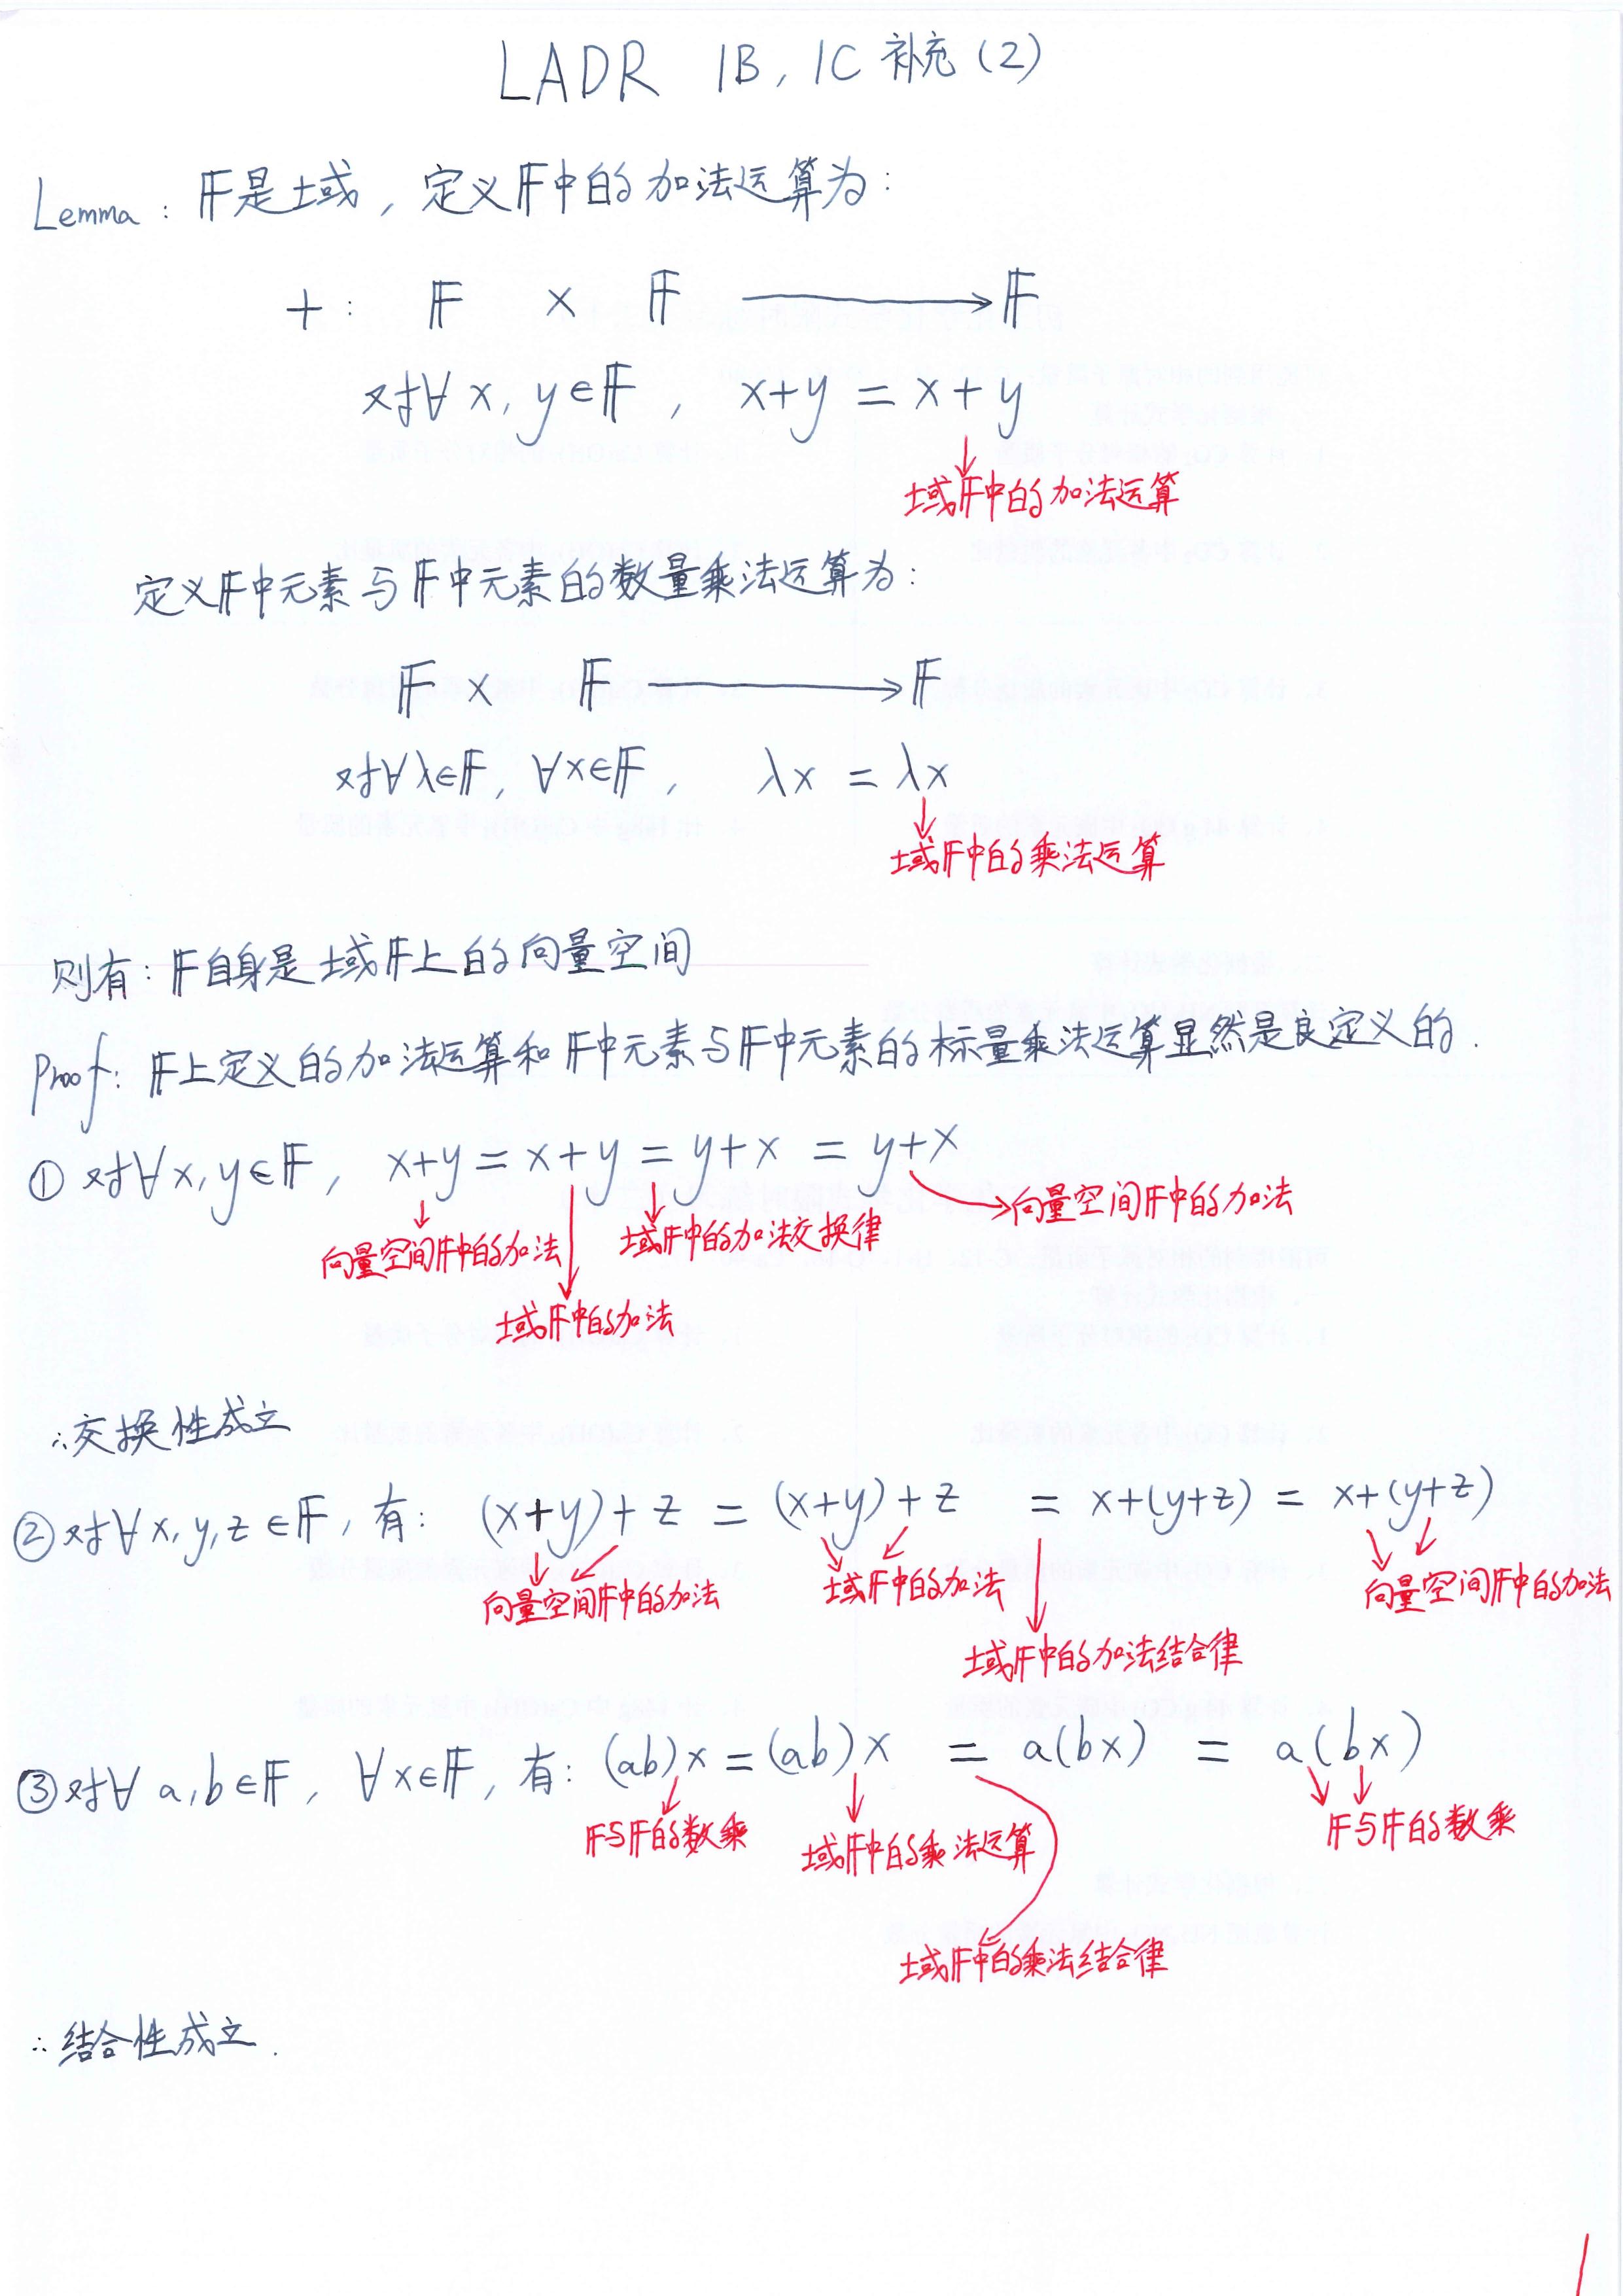 LADR 1B, 1C 补充(2)
Lemma: 𝔽是域, 定义𝔽中的加法运算为:
+: 𝔽 × 𝔽 ⟶ 𝔽
对∀x, y∈𝔽, x+y = x+y
域𝔽中的加法运算
定义𝔽中元素与𝔽中元素的数量乘法运算为:
𝔽 × 𝔽 ⟶ 𝔽
对∀λ∈𝔽, ∀x∈𝔽, λx = λx
域𝔽中的乘法运算
则有: 𝔽自身是域𝔽上的向量空间
Proof: 𝔽上定义的加法运算和𝔽中元素与𝔽中元素的标量乘法运算显然是良定义的.
① 对∀x, y∈𝔽, x+y = x+y = y+x = y+x
向量空间𝔽中的加法
域𝔽中的加法
域𝔽中的加法交换律
向量空间𝔽中的加法
∴交换性成立
② 对∀x, y, z∈𝔽, 有: (x+y)+z = (x+y)+z = x+(y+z) = x+(y+z)
向量空间𝔽中的加法
域𝔽中的加法
域𝔽中的加法结合律
向量空间𝔽中的加法
③ 对∀ a, b∈𝔽, ∀x∈𝔽, 有: (ab)x = (ab)x = a(bx) = a(bx)
𝔽与𝔽的数乘
域𝔽中的乘法运算
域𝔽中的乘法结合律
𝔽与𝔽的数乘
∴结合性成立.